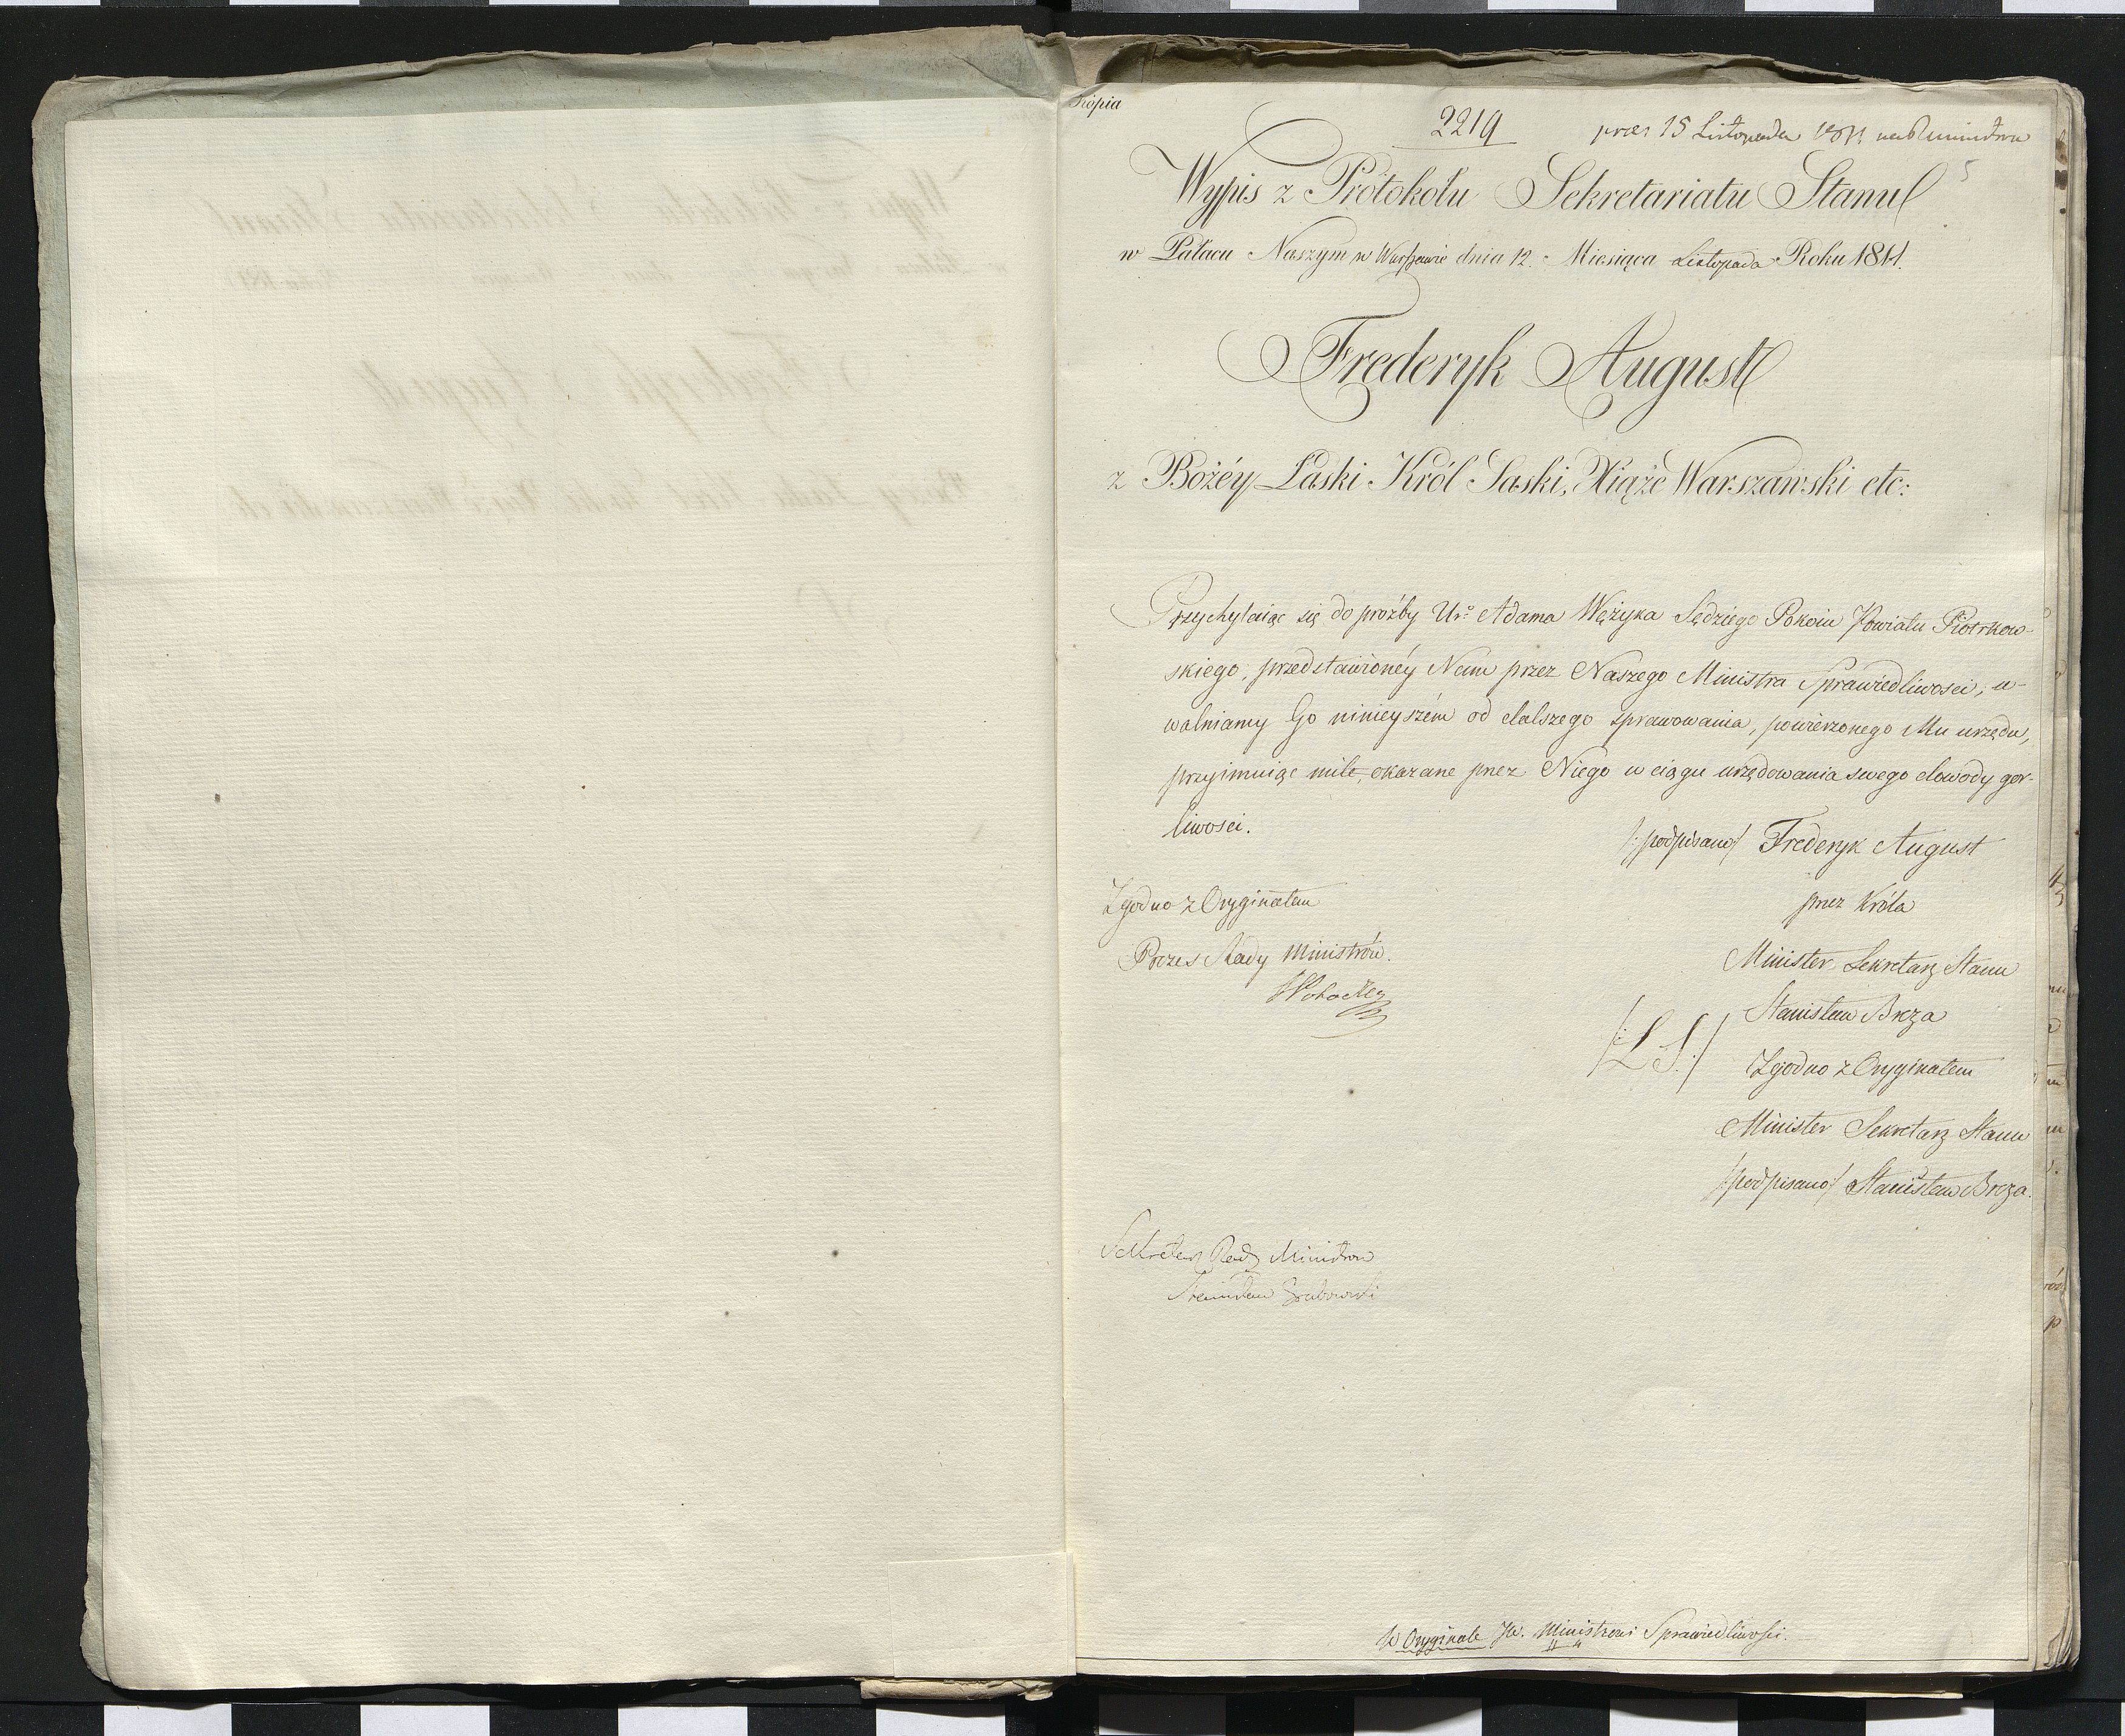 Kopia
2219
prés 15 Listopada 1811 na R Ministrów
5
Wypis z Protokołu Sekretariatu Stanu
w Pałacu Naszym w Warszawie dnia 12. Miesiąca Listopada Roku 1811.
Frederyk August
z Bożéy Łaski Król Saski, Xiąże Warszawski etc:
Przychylaiąc się do prożby Uro Adama Wężyka Sędziego Pokoiu Powiatu Piotrkow-
skiego, przedstawionéy Nam przez Naszego Ministra Sprawiedliwosci, u-
walniamy Go ninieyszém od dalszego sprawowania, powierzonego Mu urzędu,
przyimuiąc mile, okazane przez Niego w ciągu urzędowania swego dowody gor-
liwosci.
/:podpisano/ Frederyk August
przez Króla
Minister Sekretarz Stanu
Stanisław Breza
/:L.S:/
Zgodno z Oryginałem
Minister Sekretarz Stanu
/:podpisano/ Stanisław Breza.
Zgodno z Oryginałem
Prezes Rady Ministrów.
SPotocki
Sekretarz Rady Ministrow
Stanisław Grabowski
W Oryginale JW. Ministrowi Sprawiedliwości.